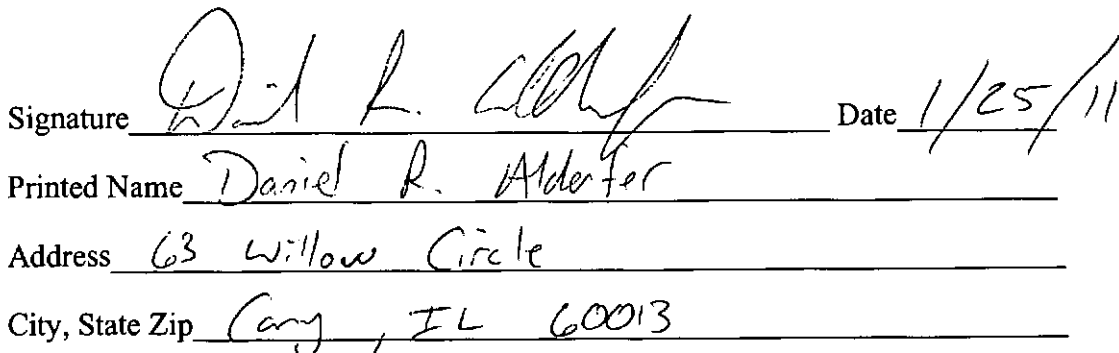 Signature Daniel R. Alderfer Date 1/25/11
Printed Name Daniel R. Alderfer
Address 63 Willow Circle
City, State Zip Cary, IL 60013